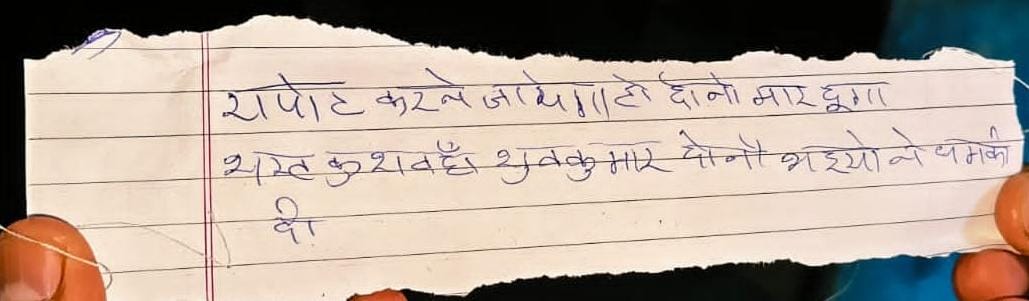 रापोट करने जायेगा तो दोनो मार दूगा
भरत कुशवहाँ शुवकुमार दोनो भइयो ने धमकी
दी